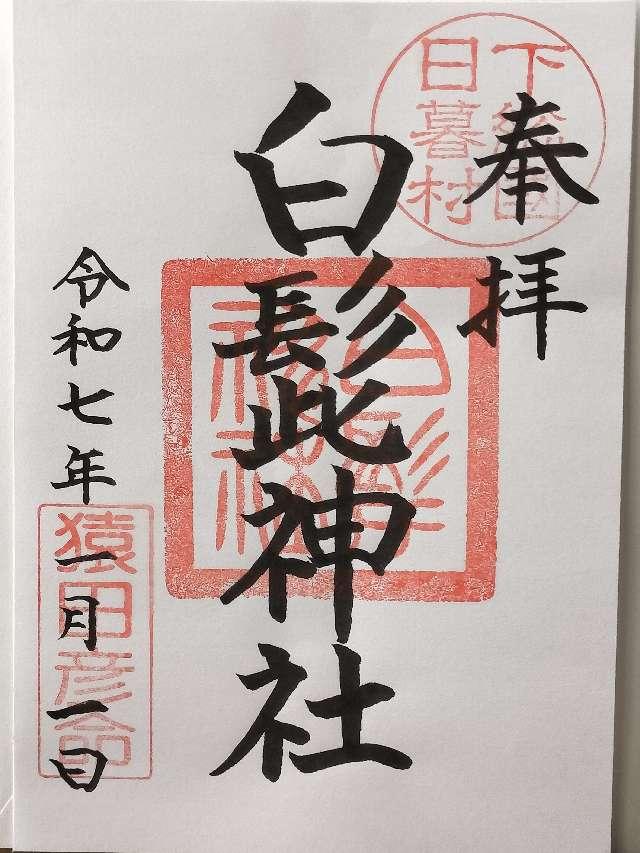 下総國
日暮村
奉拝
白髭神社
白髭
神社
令和七年一月一日
猿田彦命